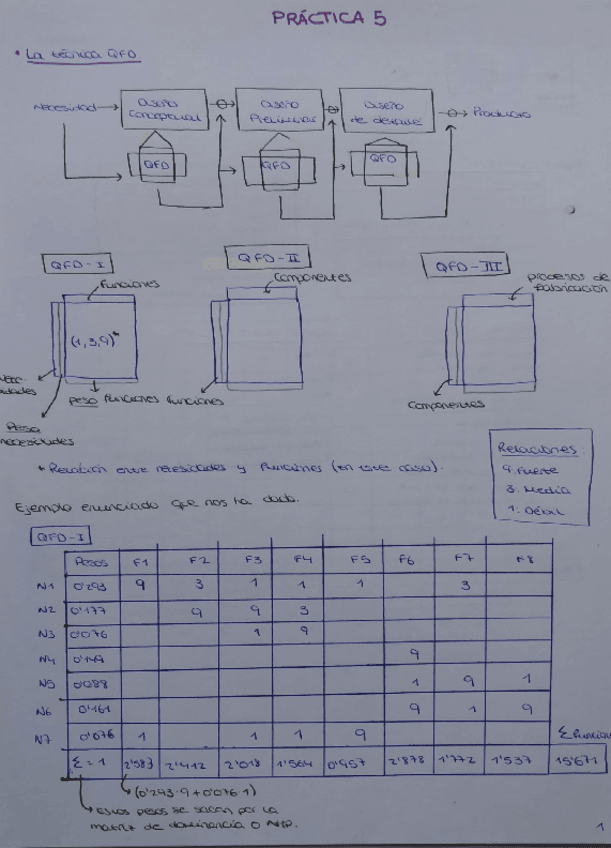 PRÁCTICA 5
• La técnica QFD
Necesidad → Diseño Conceptual → Diseño Preliminar → Diseño de detalle → Producto
QFD QFD QFD
QFD-I QFD-II QFD-III
Funciones Componentes procesos de fabricación
(1,3,9)*
Peso necesidades peso funciones funciones Componentes
* Relación entre necesidades y funciones (en este caso).
Relaciones:
9. Fuerte
3. Media
1. Débil
Ejemplo enunciado que nos ha dado.
QFD-I
Pesos F1 F2 F3 F4 F5 F6 F7 F8
N1 0'293 9 3 1 1 1 3
N2 0'177 9 9 3
N3 0'076 1 9
N4 0'149 9
N5 0'088 1 9 1
N6 0'161 9 1 9
N7 0'076 1 1 1 9
Σ funciones
Σ = 1 2'583 2'412 2'018 1'564 0'957 2'878 1'772 1'537 15'671
(0'293·9+0'076·1)
Estos pesos se sacan por la
matriz de dominancia o AHP.
1